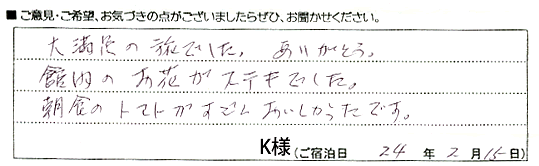 ■ご意見・ご希望、お気づきの点がございましたらぜひ、お聞かせください。
大満足の旅でした。ありがとう。
館内のお花がステキでした。
朝食のトマトがすごくおいしかったです。
K様(ご宿泊日 24年2月15日)